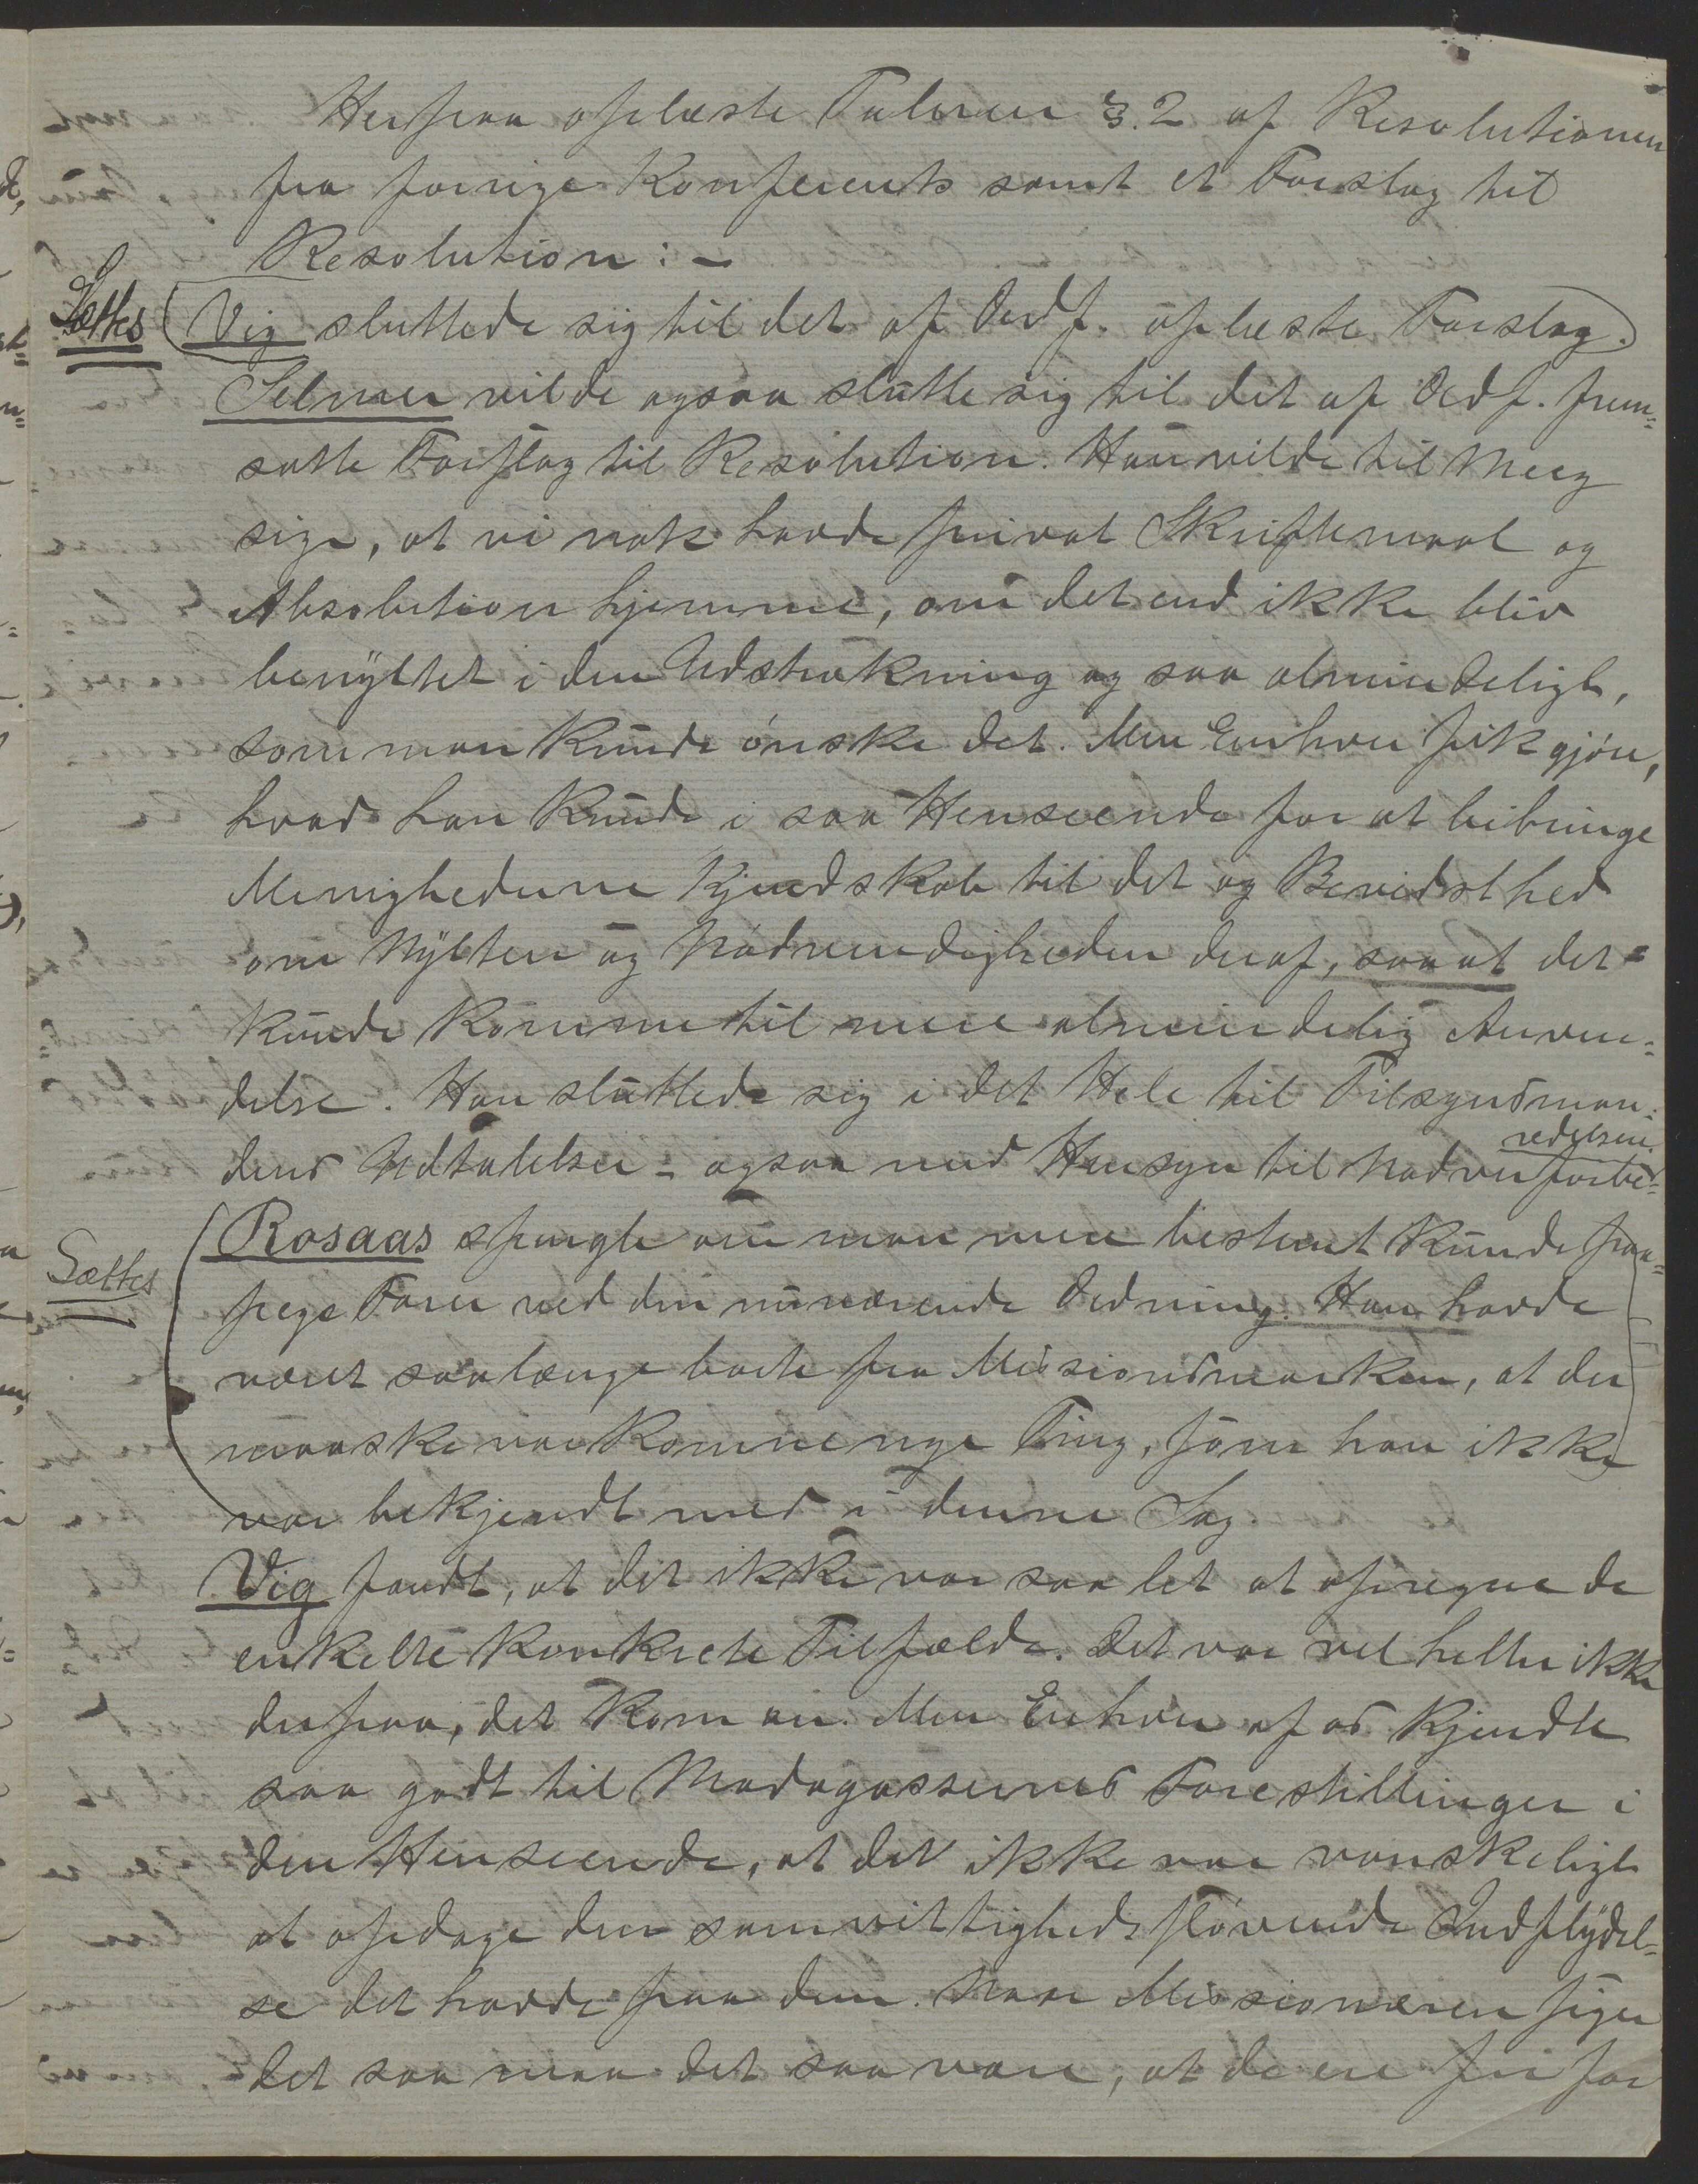 Herpaa oplæste Taleren §.2 af Resolutionen
fra forrige Konferents samt et Forslag til
Resolution: –
Sættes (Vig sluttede sig til det af Ordf. oplæste Forslag.)
Selmer vilde ogsaa slutte sig til det af Ordf. frem=
satte Forslag til Resolution. Han vilde til Meeg
sige, at vi nok havde privat Skriftemaal og
Absolution hjemme, om det end ikke blev
benyttet i den Udstrækning og saa almindeligt,
som man kunde ønske det. Men Enhver fik gjøre,
hvad han kunde i saa Henseende for at bibringe
Menighederne Kjendskab til det og Bevidsthed
om Nytten og Nødvendigheden deraf, saa at det
kunde komme til mere almindelig Anven=
delse. Han sluttede sig i det Hele til Tilsynsman=
dens Udtalelser – ogsaa med Hensyn til Nadverforbe=
redelsen.
Sættes (Rosaas spurgte om man mere bestemt kunde paa=
pege Farer ved den nuværende Ordning. Han havde
været saalænge borte fra Missionsmarken, at der
maaske var kommet nye Ting, som han ikke
var bekjendt med i denne Sag.
Vig fandt, at det ikke var saa let at opregne de
enkelte konkrete Tilfælde. Det var vel heller ikke
derpaa, det kom an. Men Enhver af os kjendte
saa godt til Madagassernes Forestillinger i
den Henseende, at det ikke var vanskeligt
at opdage den samvittighedssløvende Indflydel=
se det havde paa dem. Naar Missionæren siger
det saa maa det saa være, at de ere fri for